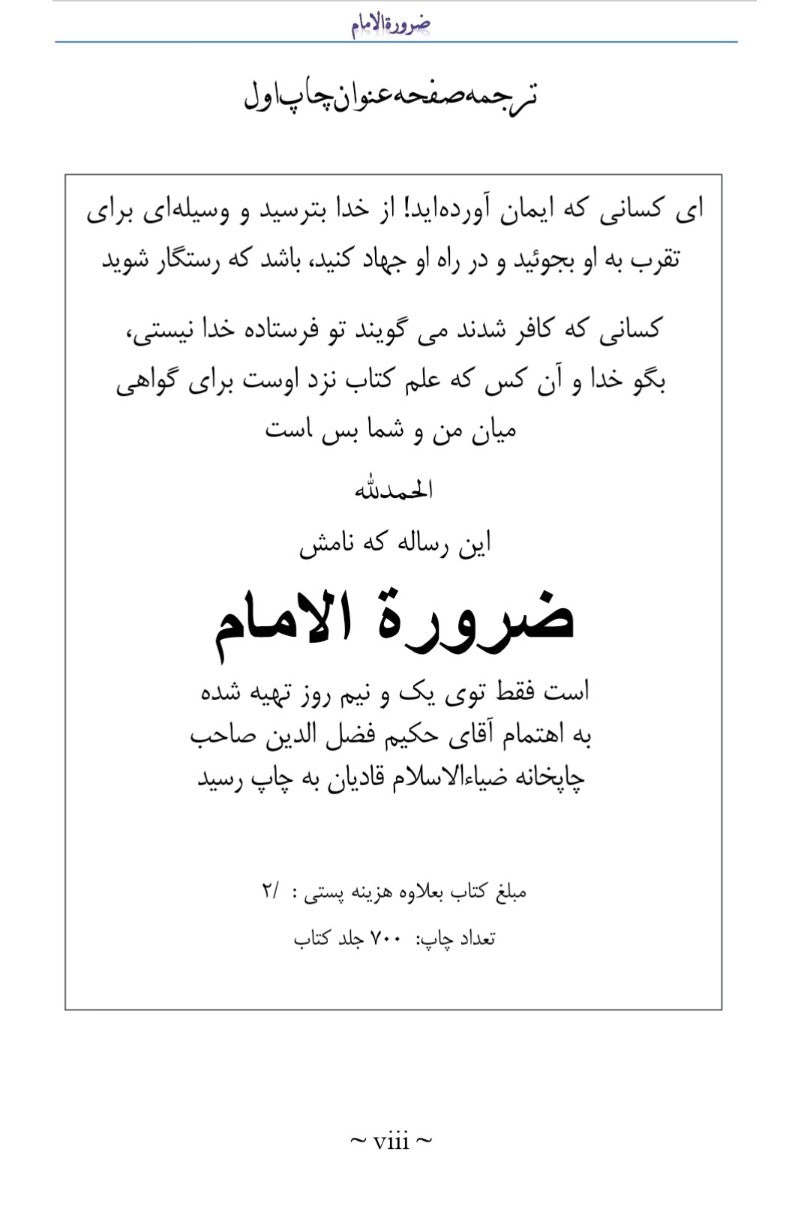 ضرورةالامام
ترجمه صفحه عنوان چاپ اول
ای کسانی که ایمان آورده‌اید! از خدا بترسید و وسیله‌ای برای
تقرب به او بجوئید و در راه او جهاد کنید، باشد که رستگار شوید
کسانی که کافر شدند می گویند تو فرستاده خدا نیستی،
بگو خدا و آن کس که علم کتاب نزد اوست برای گواهی
میان من و شما بس است
الحمدلله
این رساله که نامش
ضرورة الامام
است فقط توی یک و نیم روز تهیه شده
به اهتمام آقای حکیم فضل الدین صاحب
چاپخانه ضیاءالاسلام قادیان به چاپ رسید
مبلغ کتاب بعلاوه هزینه پستی : ۲/
تعداد چاپ: ۷۰۰ جلد کتاب
~ viii ~